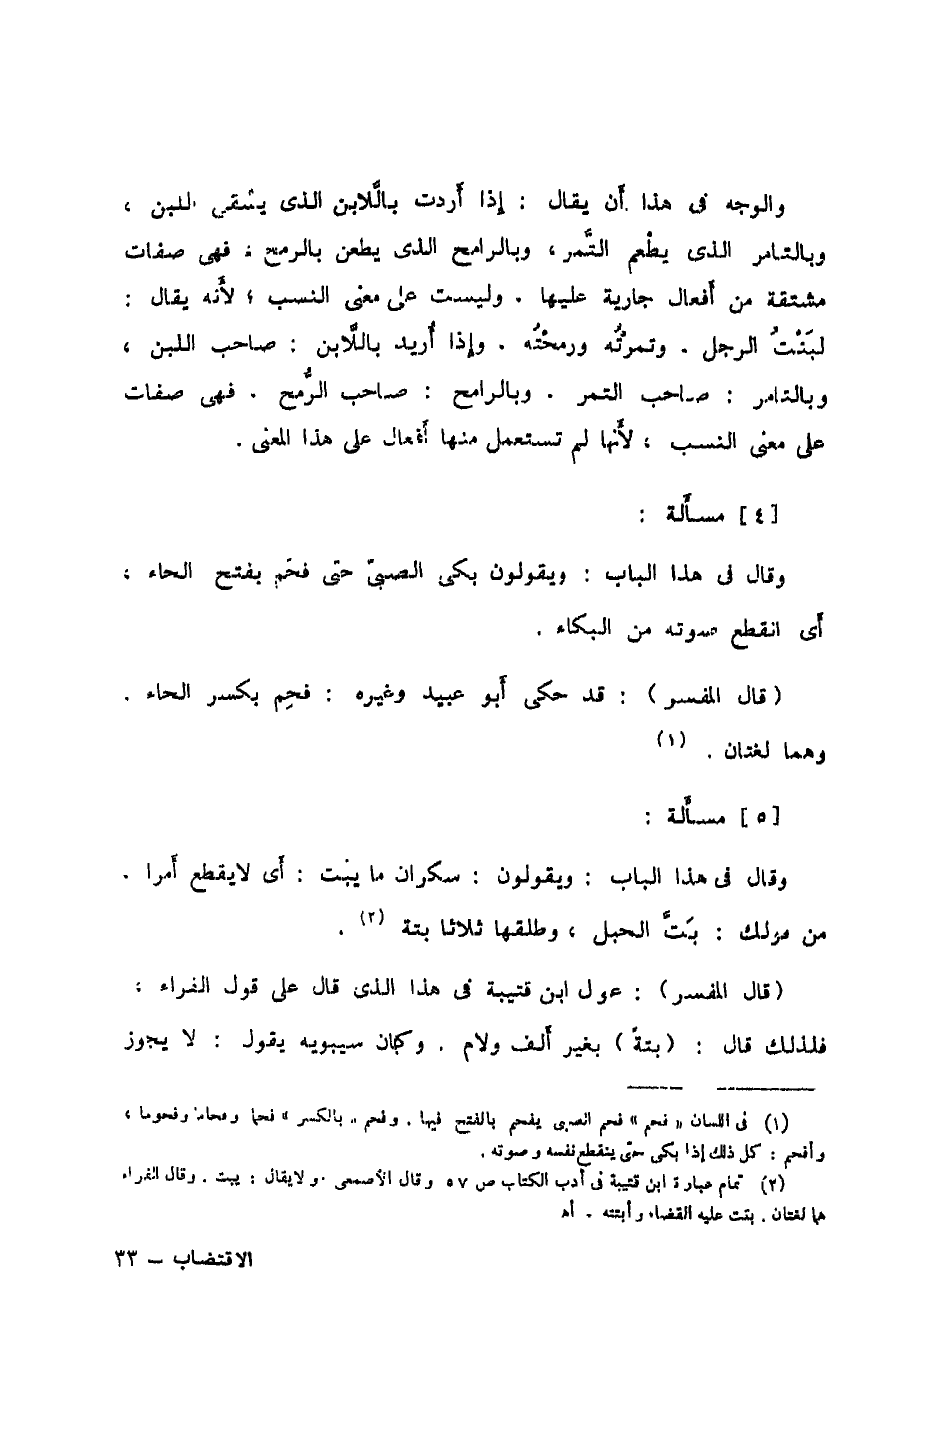 والوجه فى هذا أن يقال : إذا أردت باللَّابن الذى يسْقى اللبن ،
وبالتامر الذى يطْعم التَّمر ، وبالرامح الذى يطعن بالرمح : فهى صفات
مشتقة من أفعال جارية عليها . وليست على معنى النسب ؛ لأَنه يقال :
لبَنْتُ الرجل . وتمرتُه ورمحْتُه . وإذا أُريد باللَّابن : صاحب اللبن ،
وبالتامر : صاحب التمر . وبالرامح : صاحب الرُّمح . فهى صفات
على معنى النسب ، لأَنها لم تستعمل منها أفعال على هذا المعنى .
[٤] مسأَلة :
وقال فى هذا الباب : ويقولون بكى الصبىّ حتى فحَم بفتح الحاء ؛
أَى انقطع صوته من البكاء .
( قال المفسر ) : قد حكى أَبو عبيد وغيره : فحِم بكسر الحاء .
وهما لغتان . (١)
[٥] مسأَلة :
وقال فى هذا الباب : ويقولون : سكران ما يبْت : أَى لايقطع أَمرا .
من قولك : بَتَّ الحبل ، وطلقها ثلاثا بتة (٢) .
( قال المفسر ) : عول ابن قتيبة فى هذا الذى قال على قول الفراء ؛
فلذلك قال : ( بتةً ) بغير أَلف ولام . وكان سيبويه يقول : لا يجوز
(١) فى اللسان « فحم » فحم الصبى يفحم بالفتح فيها . وفحم « بالكسر » فحما وفحاما وفحوما ،
وأفحم : كل ذلك إذا بكى حتى ينقطع نفسه وصوته .
(٢) تمام عبارة ابن قتيبة فى أدب الكتاب ص ٥٧ وقال الأصمعى ولايقال : يبت . وقال الفراء
هما لغتان . بتت عليه القضاء وأبتته . أه
الاقتضاب – ٣٣